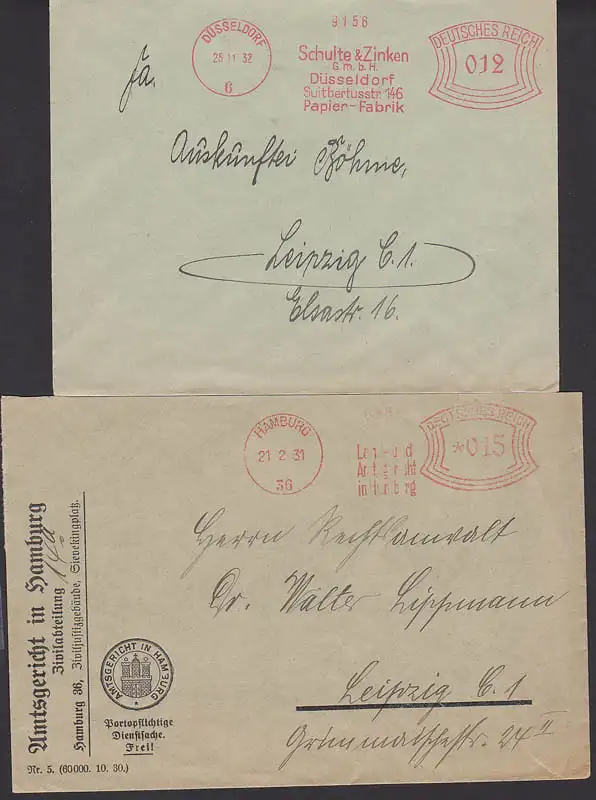 DÜSSELDORF
25 11 32
6
9156
Schulte & Zinken
G.m.b.H.
Düsseldorf
Suitbertusstr. 146
Papier-Fabrik
DEUTSCHES REICH
012
Fa.
Auskunftei Böhme,
Leipzig C.1.
Elsastr. 16.
HAMBURG
21 2 31
36
Land- und
Amtsgericht
in Hamburg
DEUTSCHES REICH
*015
Amtsgericht in Hamburg
Zivilabteilung
Hamburg 36, Ziviljustizgebäude, Sievekingplatz.
AMTSGERICHT IN HAMBURG
Portopflichtige
Dienstsache.
Frei!
Nr. 5. (60000. 10. 30.)
Herrn Rechtsanwalt
Dr. Walter Lippmann
Leipzig C. 1
Grimmaischestr. 24 II